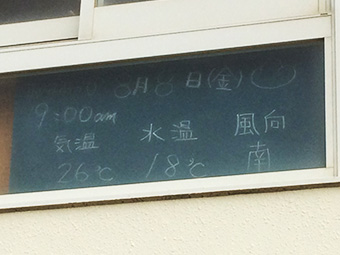 月 日(金)
9:00am
気温 水温 風向
26℃ 18℃ 南